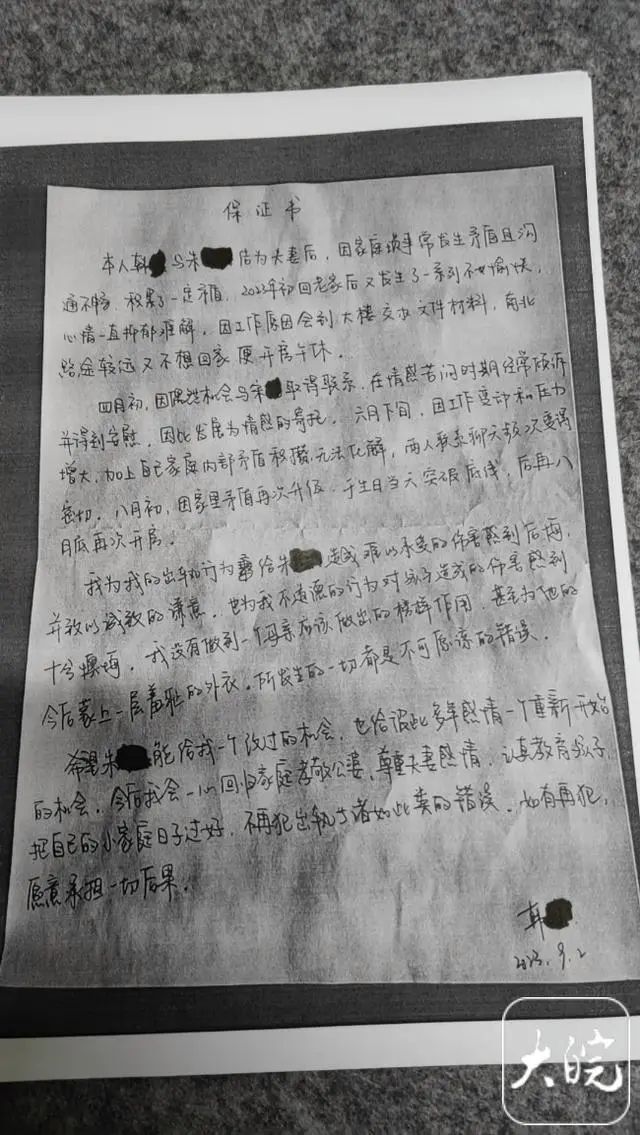 保证书
本人韩 与朱 结为夫妻后，因家庭琐事常发生矛盾且沟
通不畅，积累了一定矛盾。2023年初回老家后又发生了一系列不愉快，
心情一直抑郁难解。因工作原因会到大楼交办文件材料，南北
路途较远又不想回家便开房午休。
四月初，因偶然机会与朱 取得联系，在情感苦闷时期经常倾诉
并得到安慰，因此发展为情感的寄托。六月下旬，因工作变动和压力
增大，加上自己家庭内部矛盾积攒，无法化解，两人联系聊天频次变得
密切。八月初，因家里矛盾再次升级，于生日当天突破底线，后再八
月底再次开房。
我为我的出轨行为 给朱 造成难以承受的伤害感到后悔，
并致以诚挚的歉意，也为我不道德的行为对孩子造成的伤害感到
十分懊悔，我没有做到一个母亲应该做出的榜样作用，甚至为他的
今后蒙上一层羞耻的外衣。所发生的一切都是不可原谅的错误。
希望朱 能给我一个改过的机会，也给彼此多年感情一个重新开始
的机会，今后我会一心回归家庭孝敬公婆，尊重夫妻感情，认真教育孩子，
把自己的小家庭日子过好，不再犯出轨 诸如此类的错误，如有再犯，
愿意承担一切后果。
韩
2023.9.2
大皖